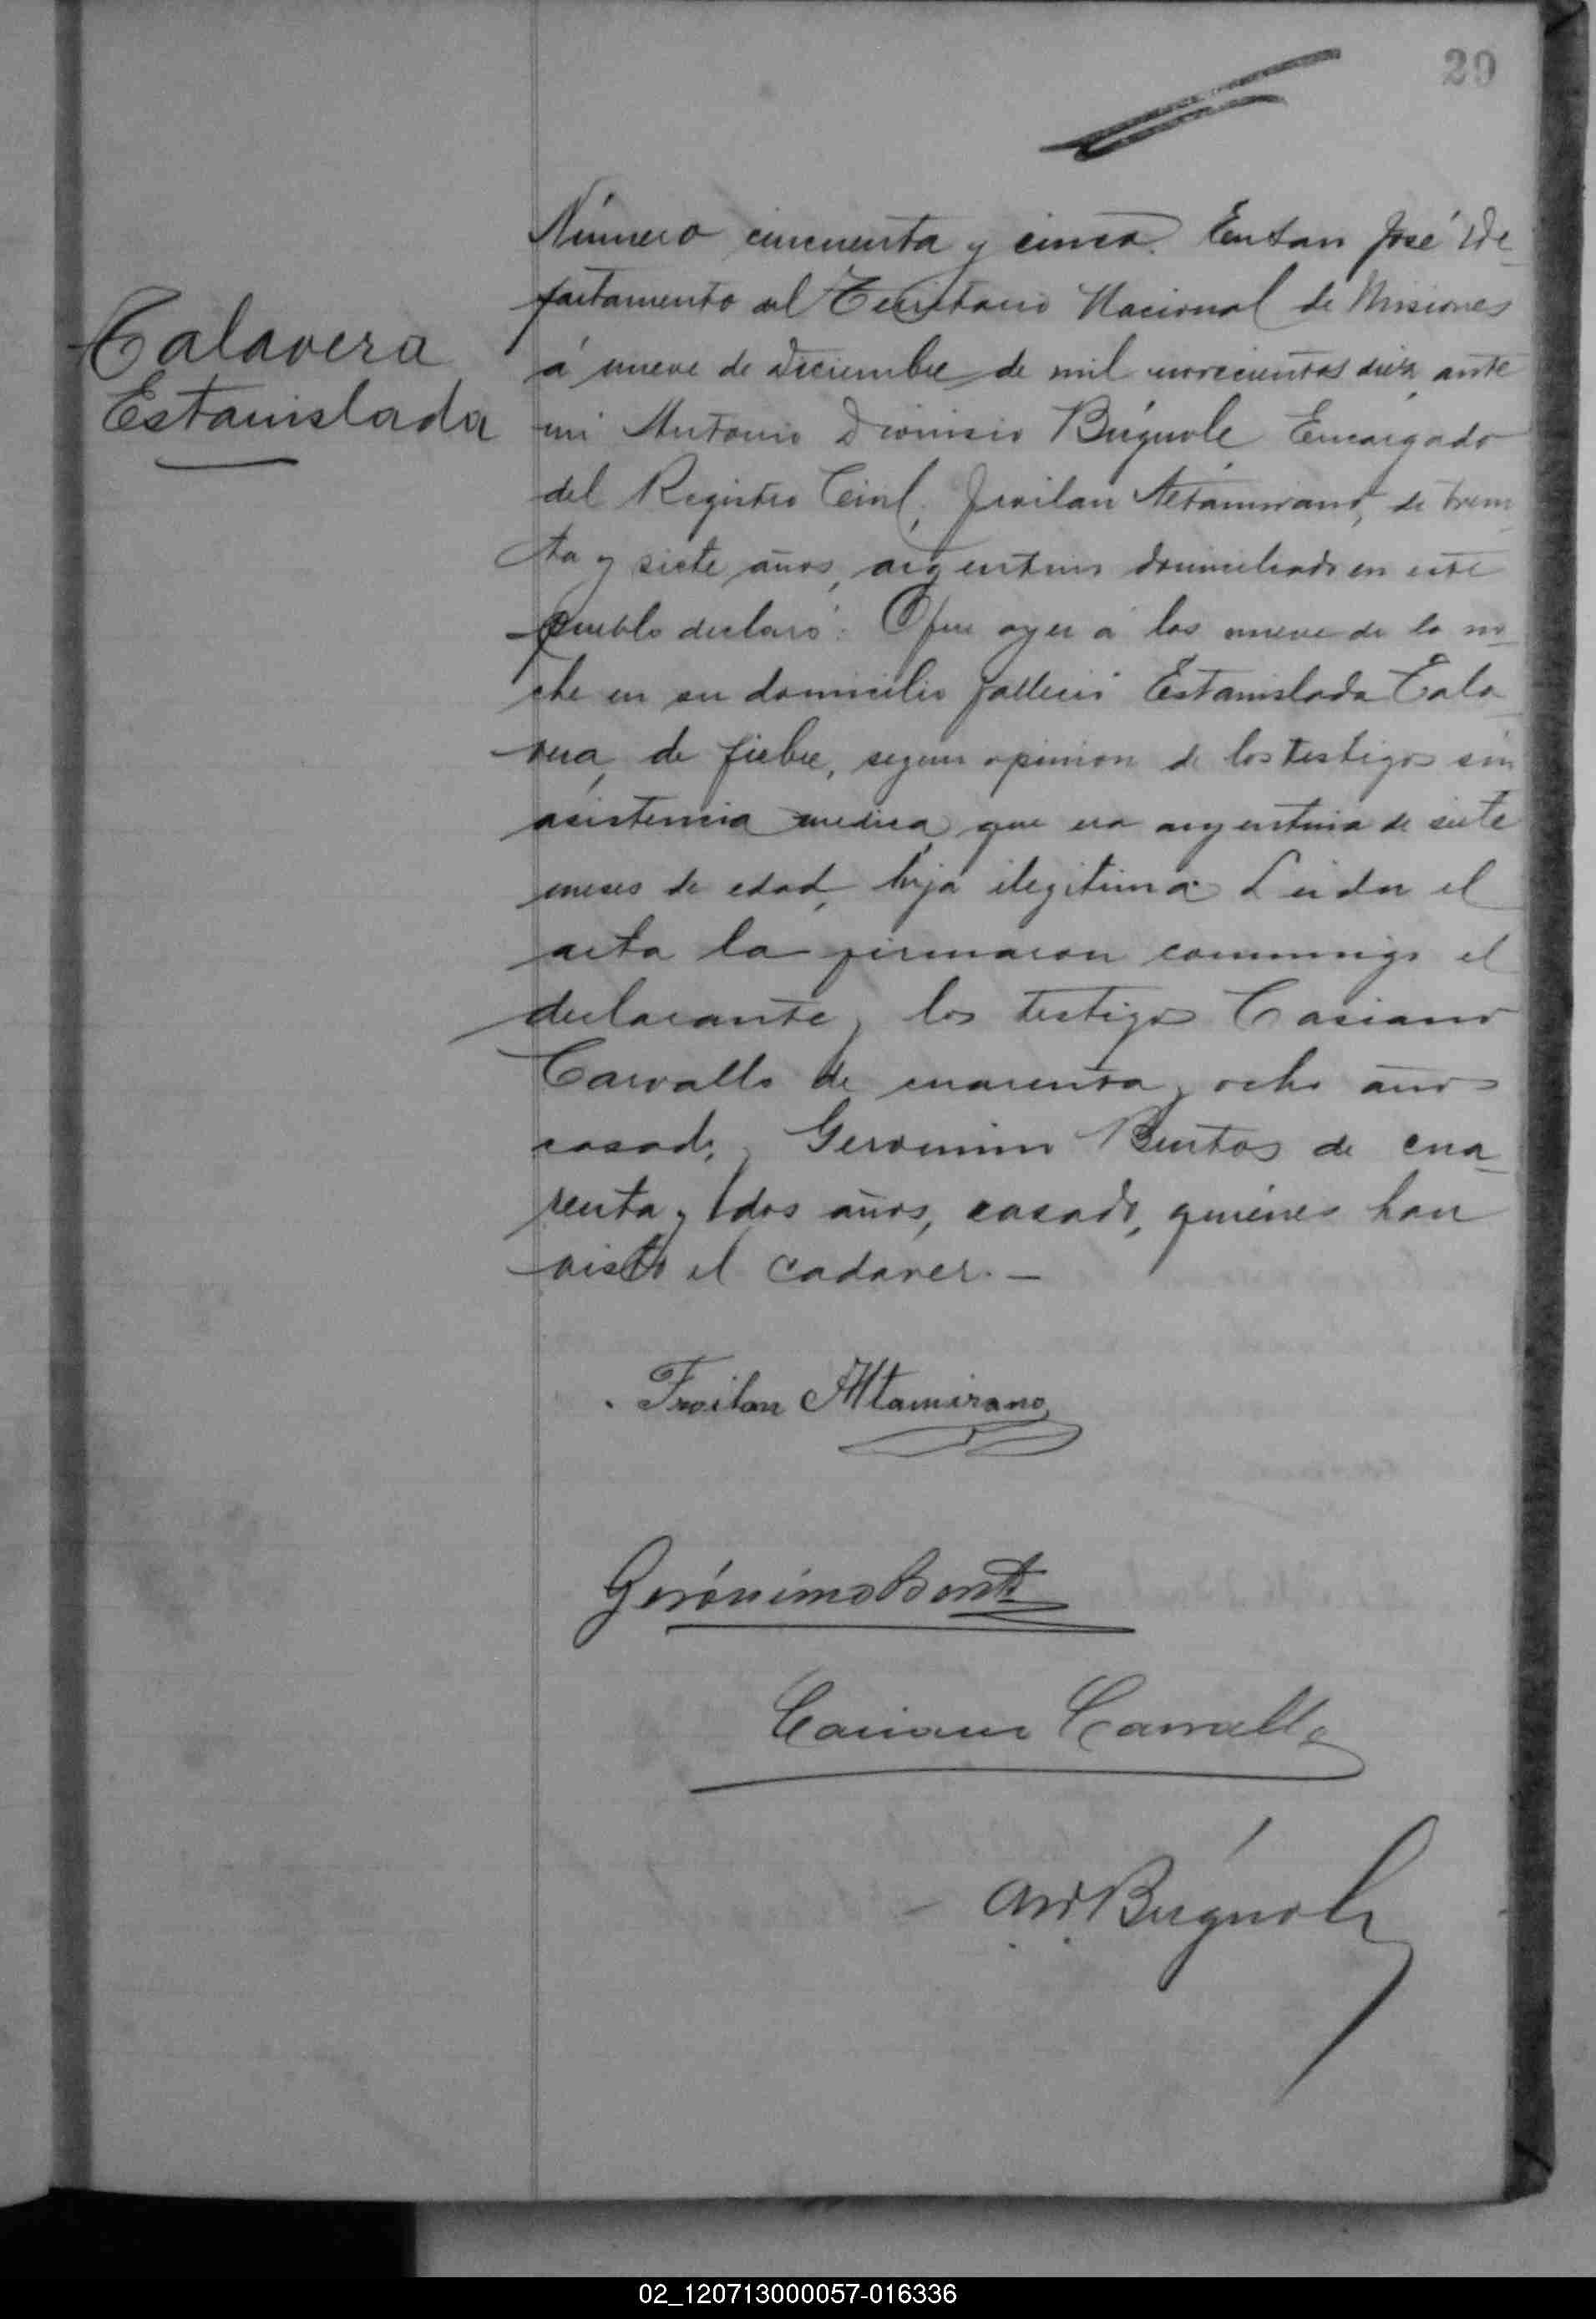 29
Número cincuenta y cinco. En San José De-
partamento del Territorio Nacional de Misiones
á nueve de Diciembre de mil novecientos diez, ante
mi Antonio Dionisio Búgnole Encargado
del Registro Civil, Froilan Altamirano, de trein
ta y siete años, argentino domiciliado en este
pueblo declaró: Que ayer á las nueve de la no-
che en su domicilio falleció Estanislada Tala-
vera, de fiebre, segun opinion de los testigos sin
asistencia medica, que era argentina de siete
meses de edad, hija ilegitima. Leida el
acta la firmaron conmmigo el
declarante y los testigos Casiano
Carvallo de cuarenta y ocho años
casado, y Geronimo Bentos de cua-
renta y dos años, casado, quiénes han
visto el cadaver. —
Talavera
Estanislada
Froilan Altamirano
Gerónimo Bentos
Casiano Carvallo
Búgnole
02_120713000057-016336